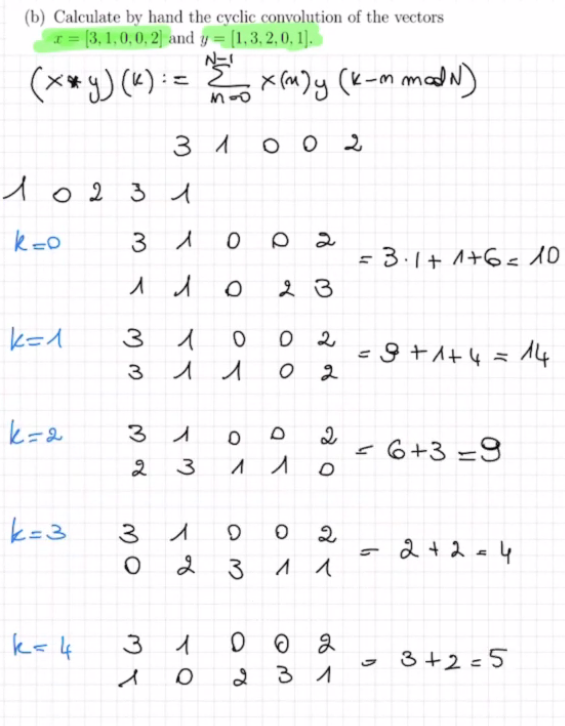 (b) Calculate by hand the cyclic convolution of the vectors
x = [3, 1, 0, 0, 2] and y = [1, 3, 2, 0, 1].
(x * y)(k) := \sum_{m=0}^{N-1} x(m) y (k-m mod N)
3 1 0 0 2
1 0 2 3 1
k=0 3 1 0 0 2
1 1 0 2 3 = 3·1 + 1+6 = 10
k=1 3 1 0 0 2
3 1 1 0 2 = 9 + 1 + 4 = 14
k=2 3 1 0 0 2
2 3 1 1 0 = 6+3 = 9
k=3 3 1 0 0 2
0 2 3 1 1 = 2 + 2 = 4
k=4 3 1 0 0 2
1 0 2 3 1 = 3+2=5